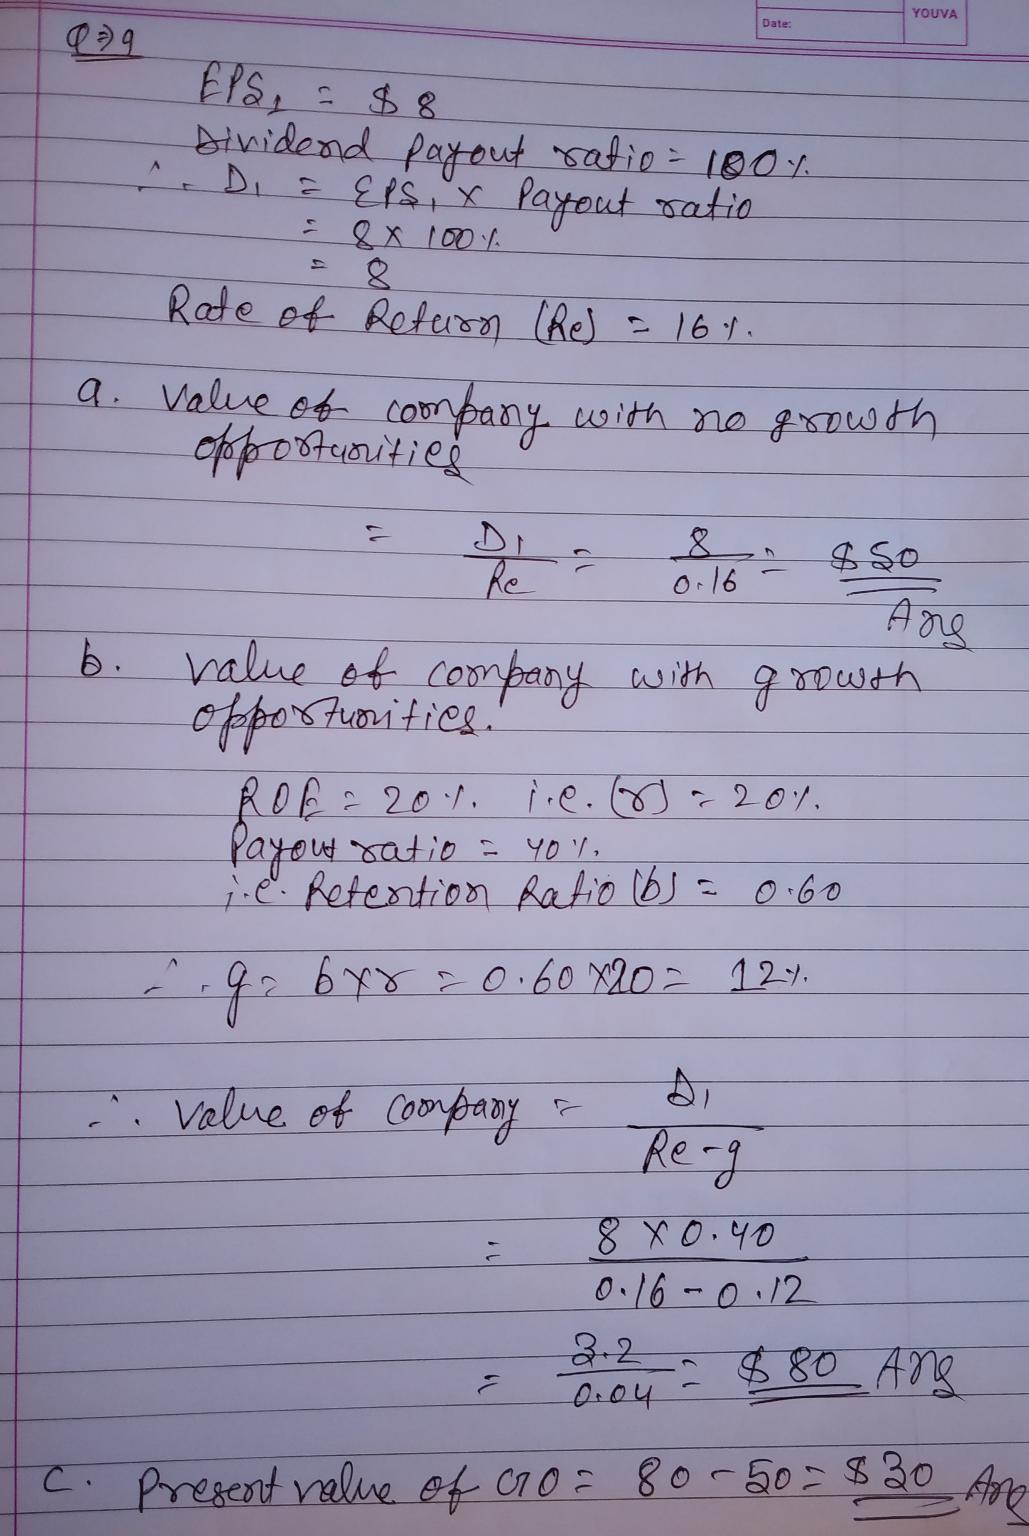 Date:
YOUVA
Q⇒9
EPS₁ = $ 8
Dividend Payout ratio = 100%
∴ D₁ = EPS₁ × Payout ratio
= 8 × 100%
= 8
Rate of Return (Re) = 16%.
a. Value of company with no growth
opportunities
= D₁/Re = 8/0.16 = $50
Ans
b. value of company with growth
opportunities.
ROE = 20%. i.e. (r) = 20%.
Payout ratio = 40%.
i.e. Retention Ratio (b) = 0.60
∴ g = b×r = 0.60×20 = 12%.
∴ Value of company = D₁/Re-g
= 8 × 0.40/0.16 - 0.12
= 3.2/0.04 = $ 80 Ans
C. Present value of GO = 80 - 50 = $ 30 Ans